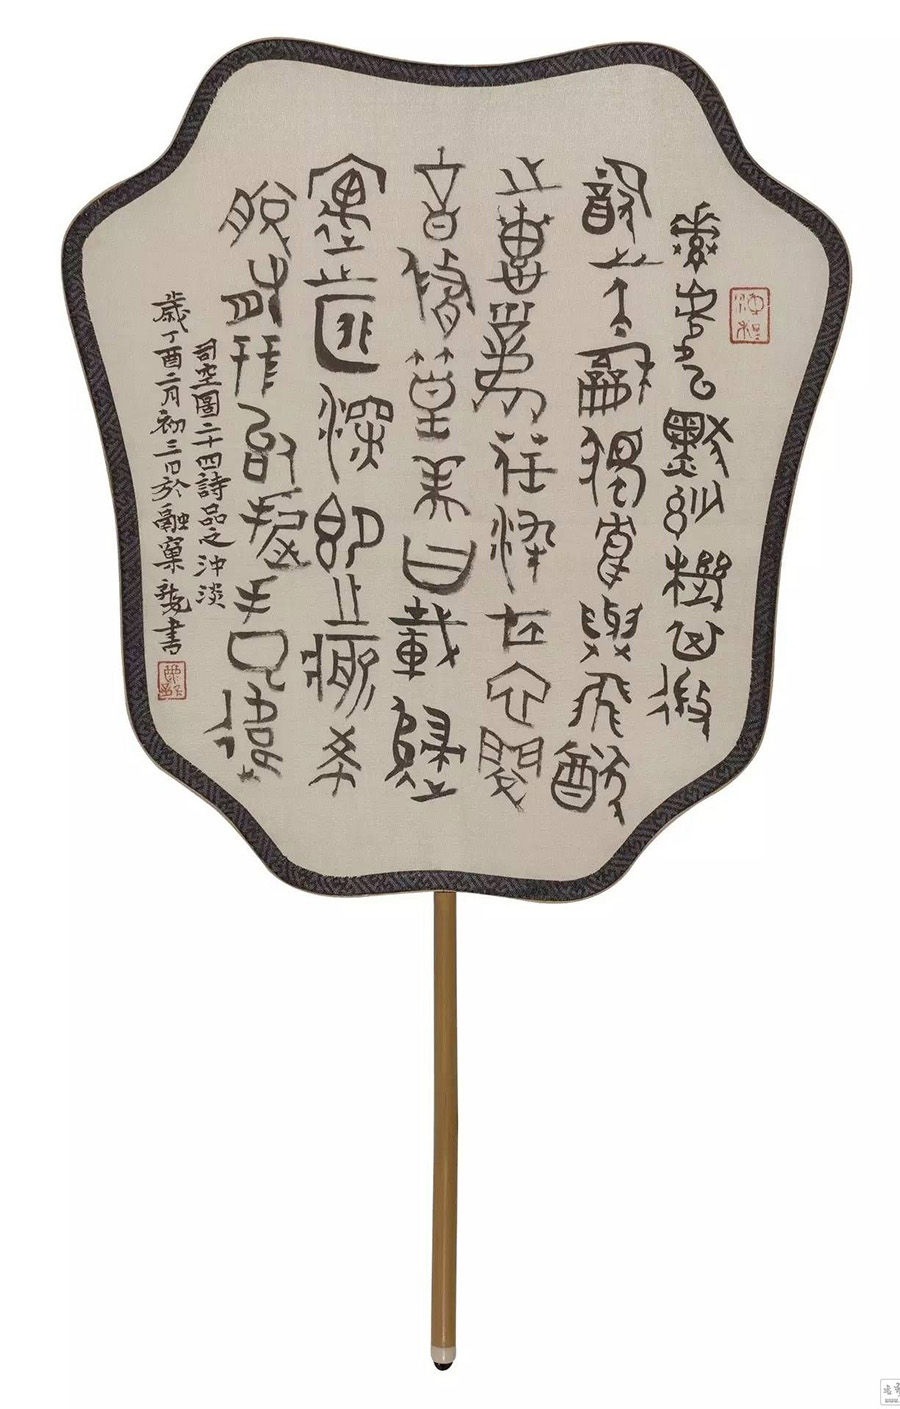 素處以默妙機其微
飲之太龢獨鶴與飛猶
之惠風荏苒在衣閱
音修篁美曰載歸
遇之匪深即之愈希
脫有形佀握手已違
司空圖二十四詩品之沖淡
歲丁酉二月初三日於融窠書